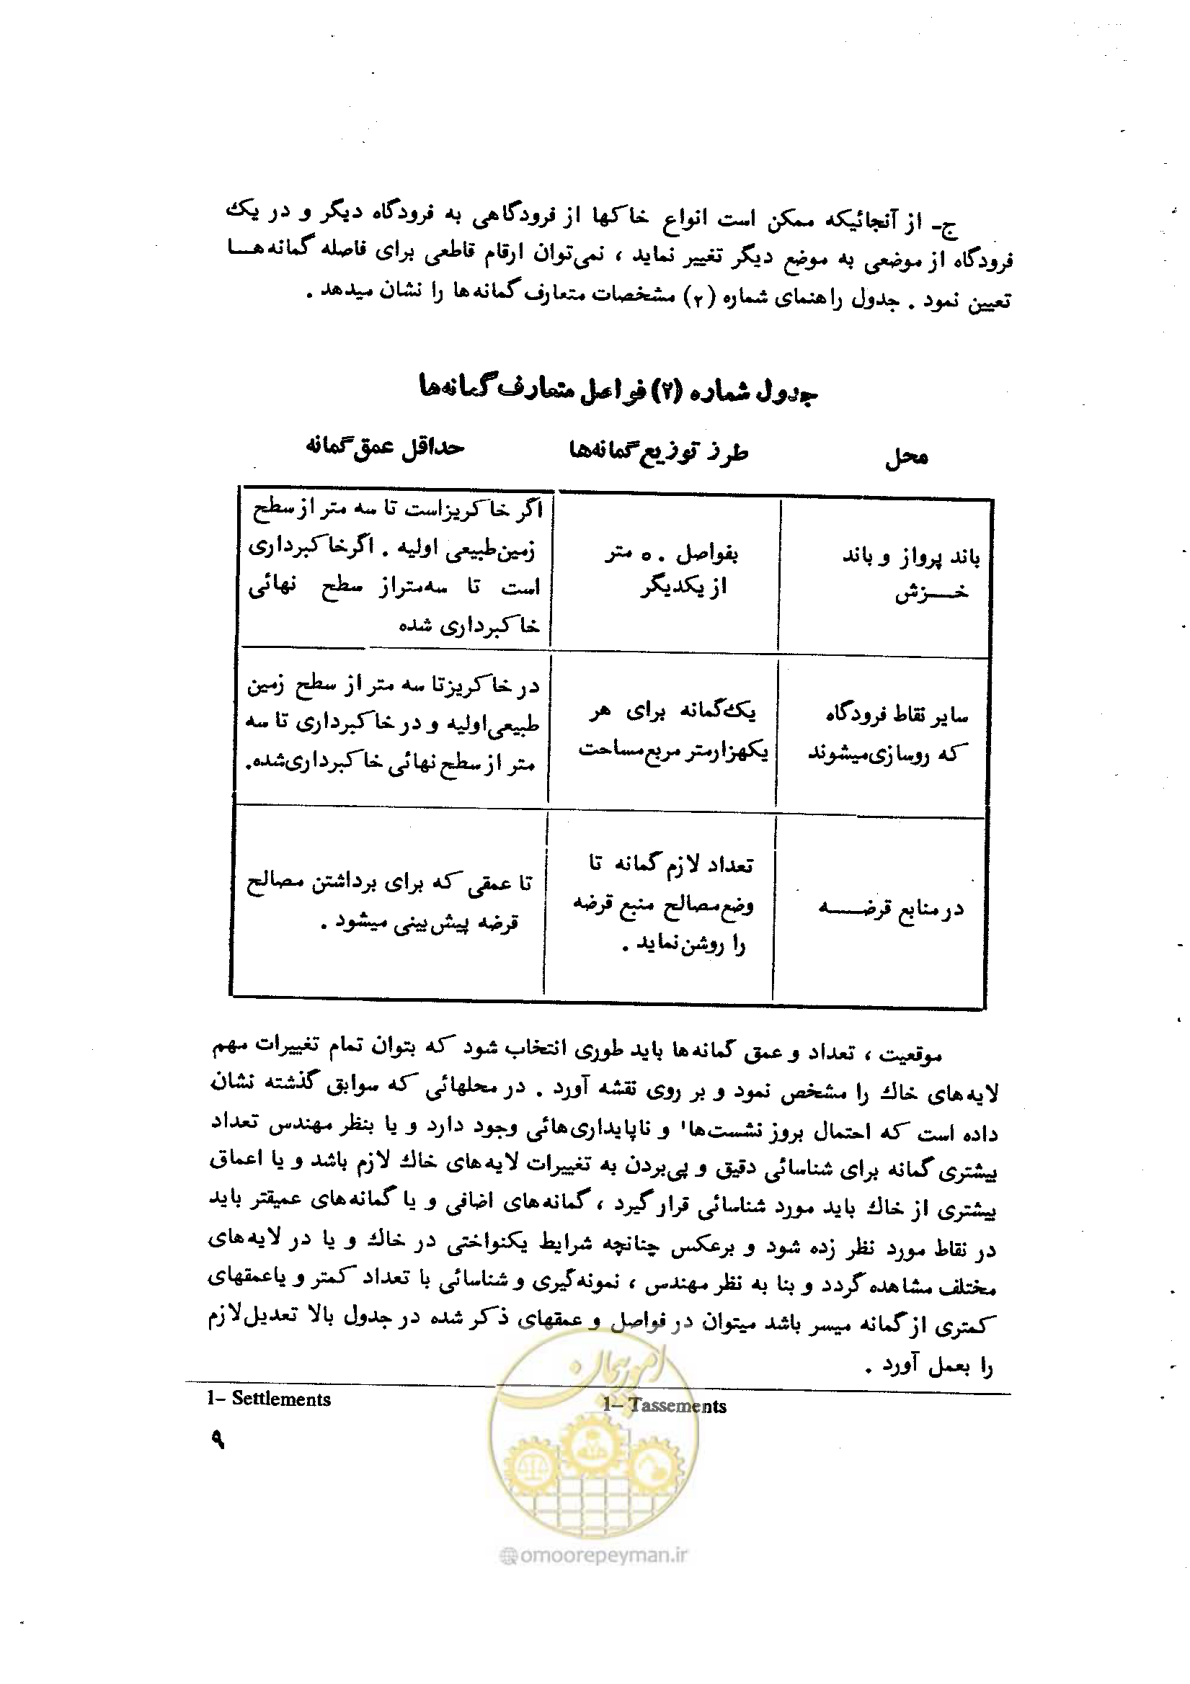 ج- از آنجائیکه ممکن است انواع خاکها از فرودگاهی به فرودگاه دیگر و در یک
فرودگاه از موضعی به موضع دیگر تغییر نماید ، نمی‌توان ارقام قاطعی برای فاصله گمانه‌هـــا
تعیین نمود . جدول راهنمای شماره (۲) مشخصات متعارف گمانه‌ها را نشان میدهد .
جدول شماره (۲) فواصل متعارف گمانه‌ها
محل
طرز توزیع گمانه‌ها
حداقل عمق گمانه
باند پرواز و باند
خـــزش
بفواصل ۵۰ متر
از یکدیگر
اگر خاکریز است تا سه متر از سطح
زمین طبیعی اولیه . اگر خاکبرداری
است تا سه‌متر از سطح نهائی
خاکبرداری شده
سایر نقاط فرودگاه
که روسازی میشوند
یک گمانه برای هر
یکهزار متر مربع مساحت
در خاکریز تا سه متر از سطح زمین
طبیعی اولیه و در خاکبرداری تا سه
متر از سطح نهائی خاکبرداری شده.
در منابع قرضـــه
تعداد لازم گمانه تا
وضع مصالح منبع قرضه
را روشن نماید .
تا عمقی که برای برداشتن مصالح
قرضه پیش بینی میشود .
موقعیت ، تعداد و عمق گمانه‌ها باید طوری انتخاب شود که بتوان تمام تغییرات مهم
لایه‌های خاک را مشخص نمود و بر روی نقشه آورد . در محلهائی که سوابق گذشته نشان
داده است که احتمال بروز نشست‌ها۱ و ناپایداری‌هائی وجود دارد و یا بنظر مهندس تعداد
بیشتری گمانه برای شناسائی دقیق و پی‌بردن به تغییرات لایه‌های خاک لازم باشد و یا اعماق
بیشتری از خاک باید مورد شناسائی قرار گیرد ، گمانه‌های اضافی و یا گمانه‌های عمیقتر باید
در نقاط مورد نظر زده شود و برعکس چنانچه شرایط یکنواختی در خاک و یا در لایه‌های
مختلف مشاهده گردد و بنا به نظر مهندس ، نمونه‌گیری و شناسائی با تعداد کمتر و یا عمقهای
کمتری از گمانه میسر باشد میتوان در فواصل و عمقهای ذکر شده در جدول بالا تعدیل لازم
را بعمل آورد .
1– Settlements
1– Tassements
۹
امور پیمان
@omoorepeyman.ir